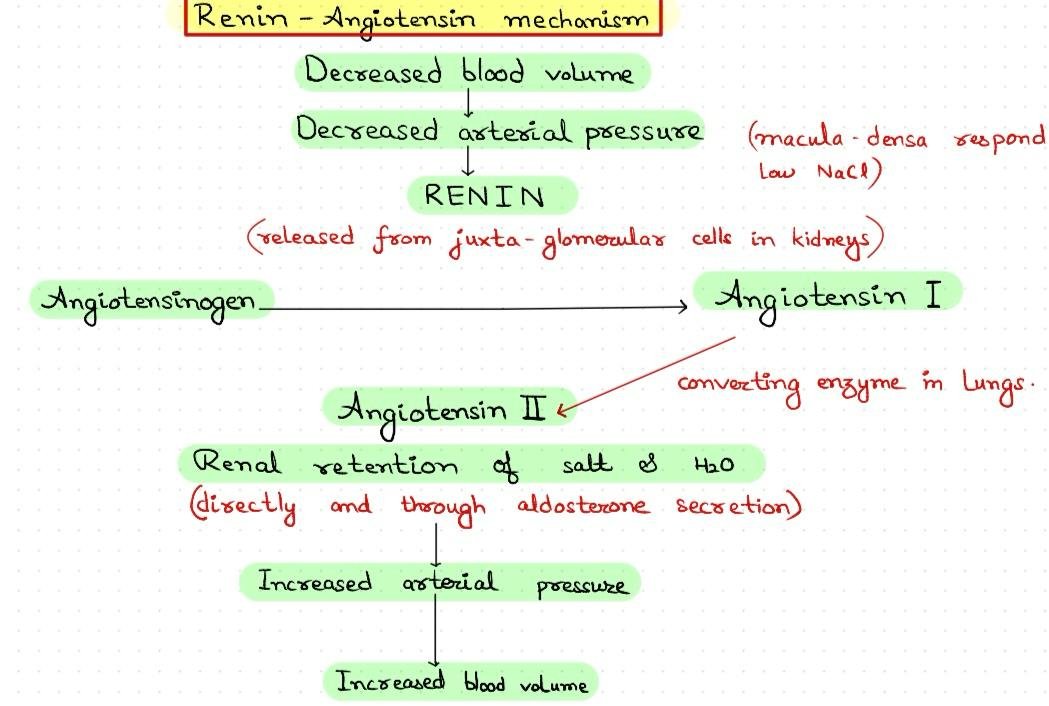 Renin - Angiotensin mechanism
Decreased blood volume
Decreased arterial pressure
(macula-densa respond
Low NaCl)
RENIN
(released from juxta-glomerular cells in kidneys)
Angiotensinogen
Angiotensin I
converting enzyme in Lungs.
Angiotensin II
Renal retention of salt & H2O
(directly and through aldosterone secretion)
Increased arterial pressure
Increased blood volume